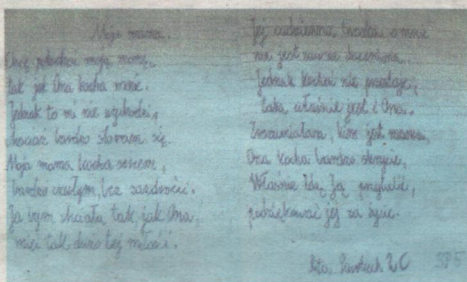 Moja mama.
Chcę pokochać moją mamę,
tak jak Ona kocha mnie.
Jednak to mi nie wychodzi,
chociaż bardzo staram się.
Moja mama kocha sercem,
bardzo ciepłym, bez zazdrości.
Ja bym chciała tak jak Ona
mieć tak dużo tej miłości.
Jej codzienna troska o mnie
nie jest zawsze doceniona.
Jednak kochać nie przestaje,
taka właśnie jest i Ona.
Zrozumiałam, kim jest mama,
Ona kocha bardzo skrycie.
Właśnie idę Ją przytulić,
podziękować jej za życie.
2 C
SP 5